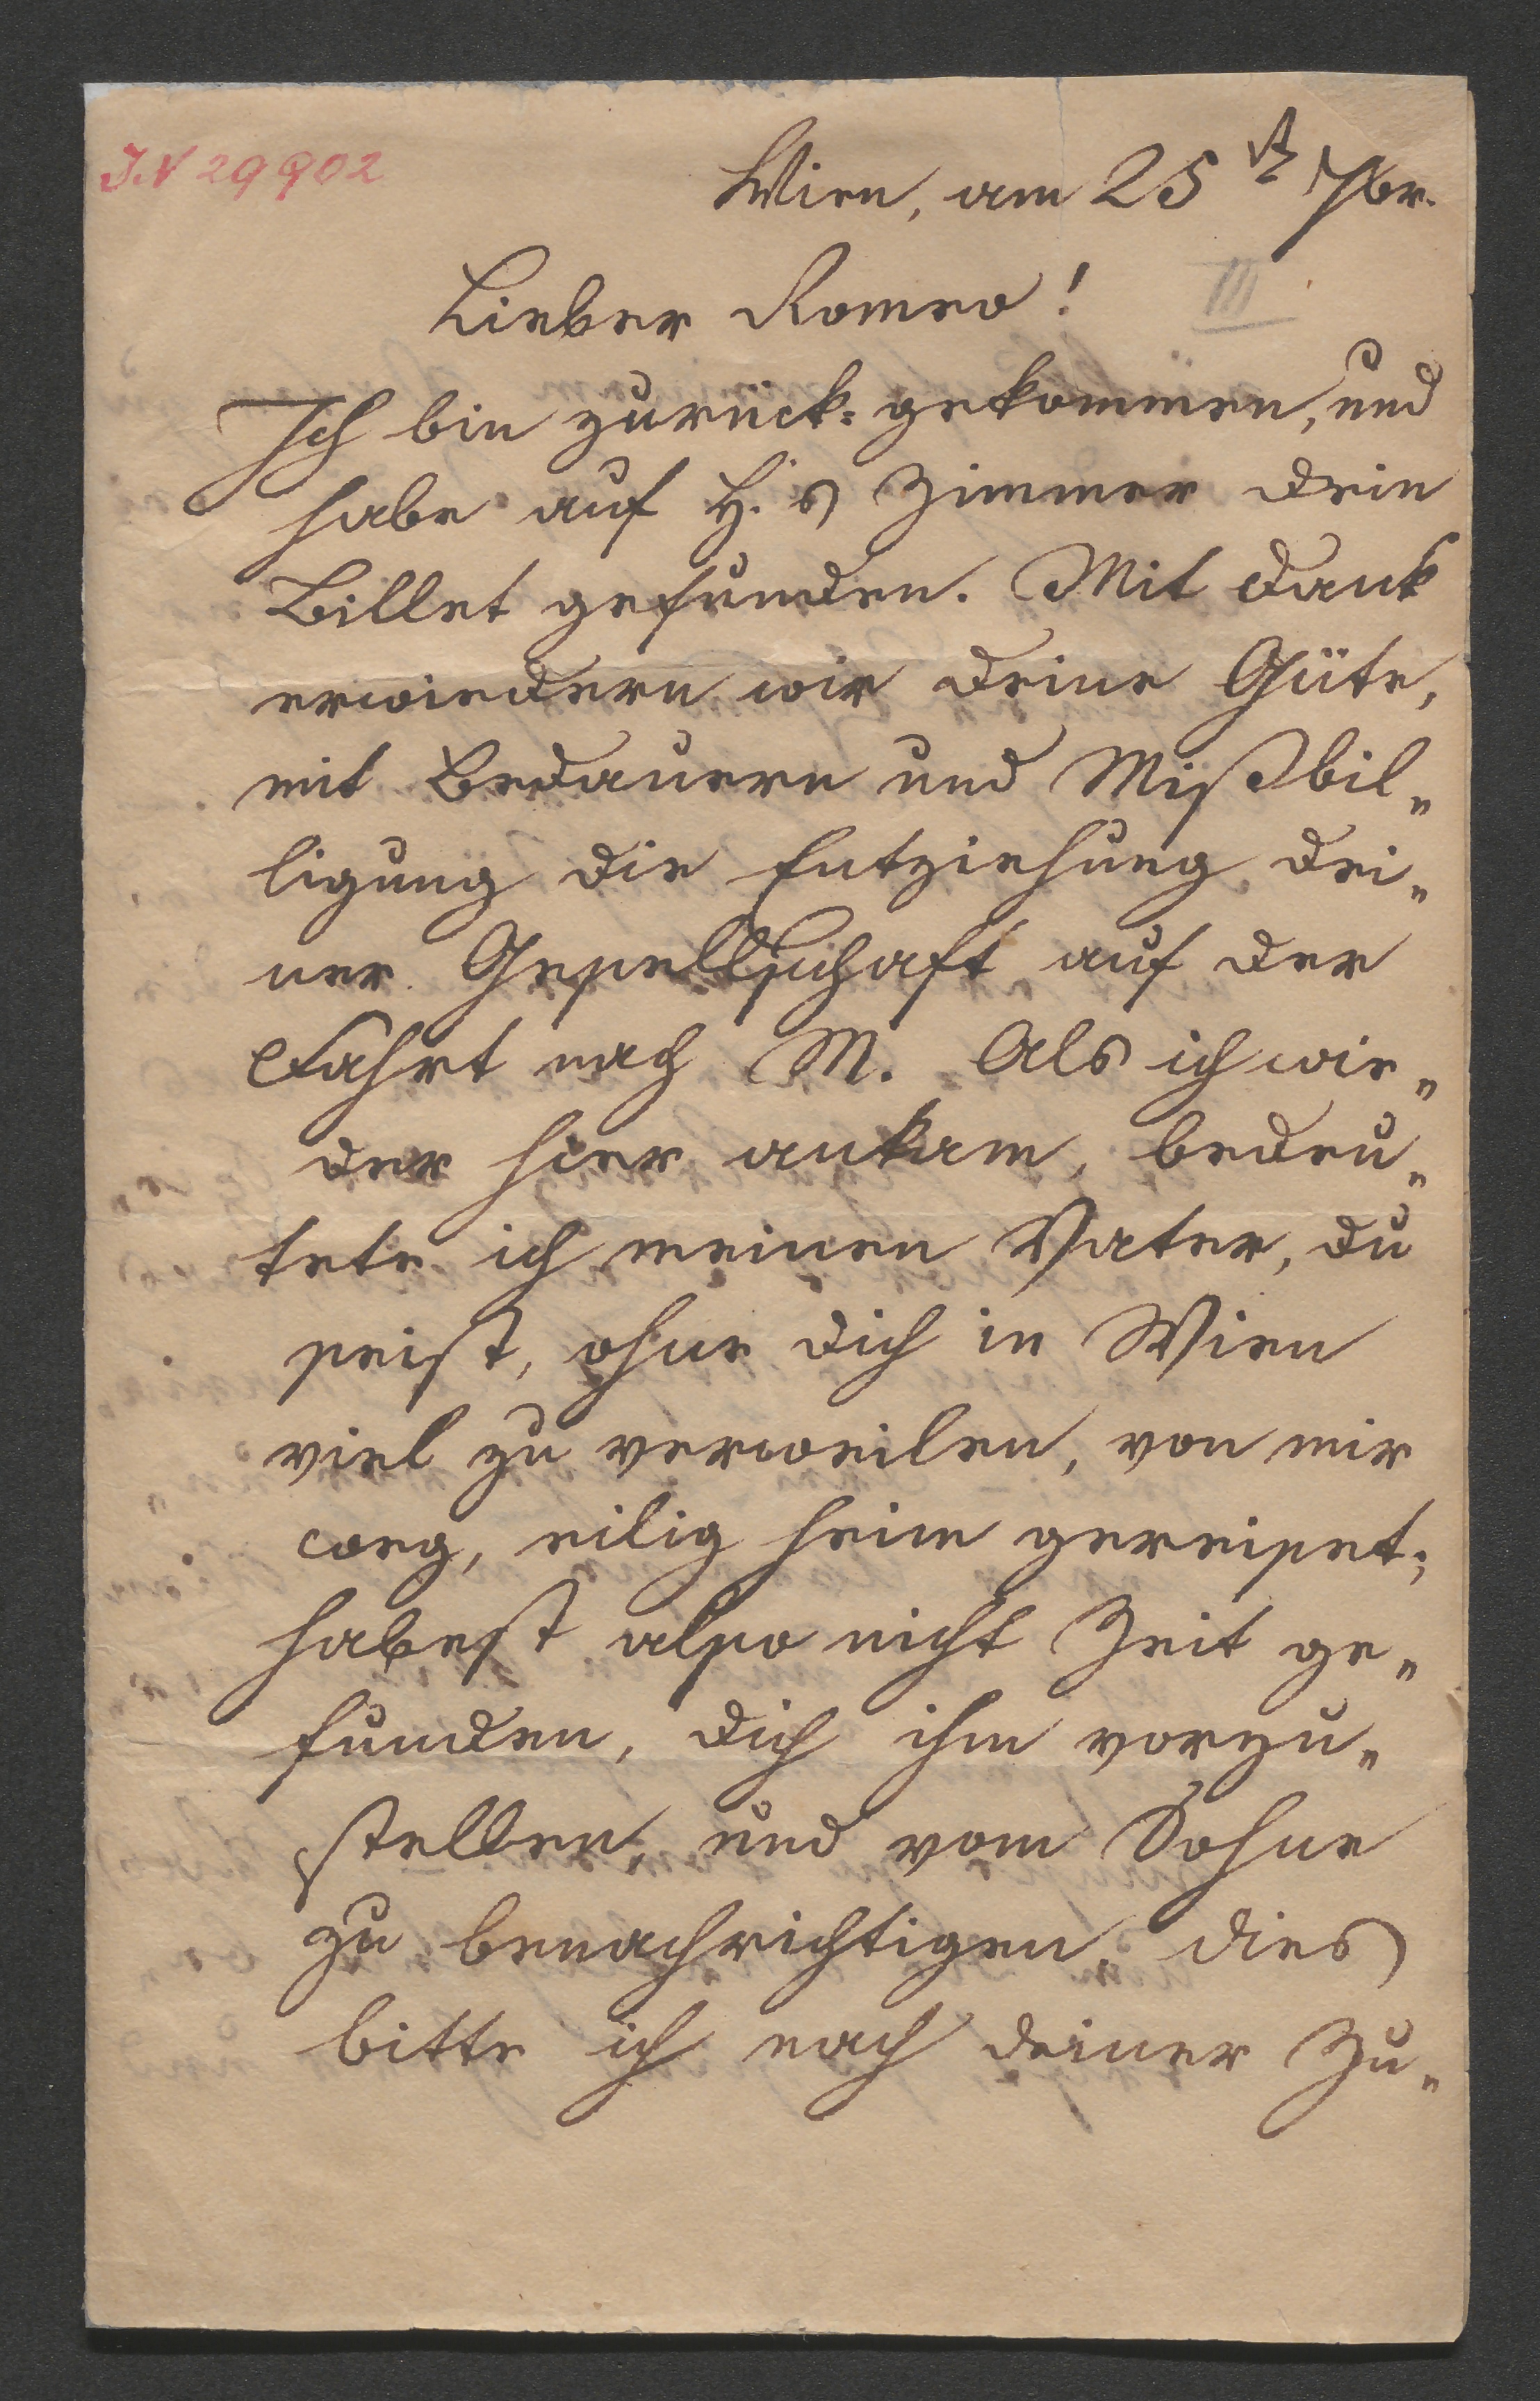 J.N 29902
Wien, am 25t 7br.
III
Lieber Romeo!
Ich bin zurück-gekommen, und
habe auf H.s Zimmer dein
Billet gefunden. Mit Dank
erwiedern wir deine Güte,
mit Bedauern und Mißbil„
ligung die Entziehung dei„
ner Gesellschaft auf der
Fahrt nach M. Als ich wie„
der hier ankam, bedeu„
tete ich meinen Vater, du
seist, ohne dich in Wien
viel zu verweilen, von mir
weg, eilig heim gereiset;
habest also nicht Zeit ge„
funden, dich ihm vorzu„
stellen, und vom Sohne
zu benachrichtigen. dies
bitte ich nach deiner Zu„